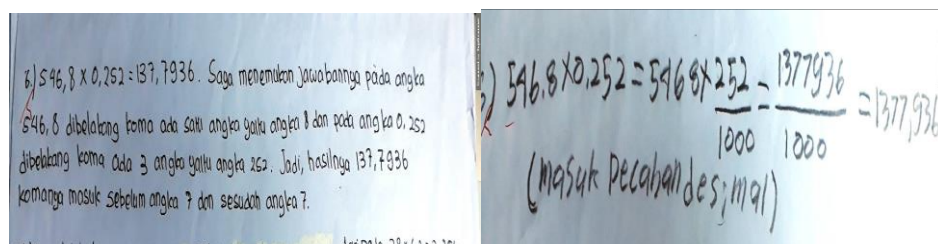 8) 546,8 x 0,252 = 137,7936. Saya menemukan jawabannya pada angka
546,8 dibelakang koma ada satu angka yaitu angka 8 dan pada angka 0,252
dibelakang koma ada 3 angka yaitu angka 252. Jadi, hasilnya 137,7936
komanya masuk sebelum angka 7 dan sesudah angka 7.
) 546.8 x 0,252 = 5468 x 252/1000 = 1377936/1000 = 1377,936
(masuk Pecahan desimal)